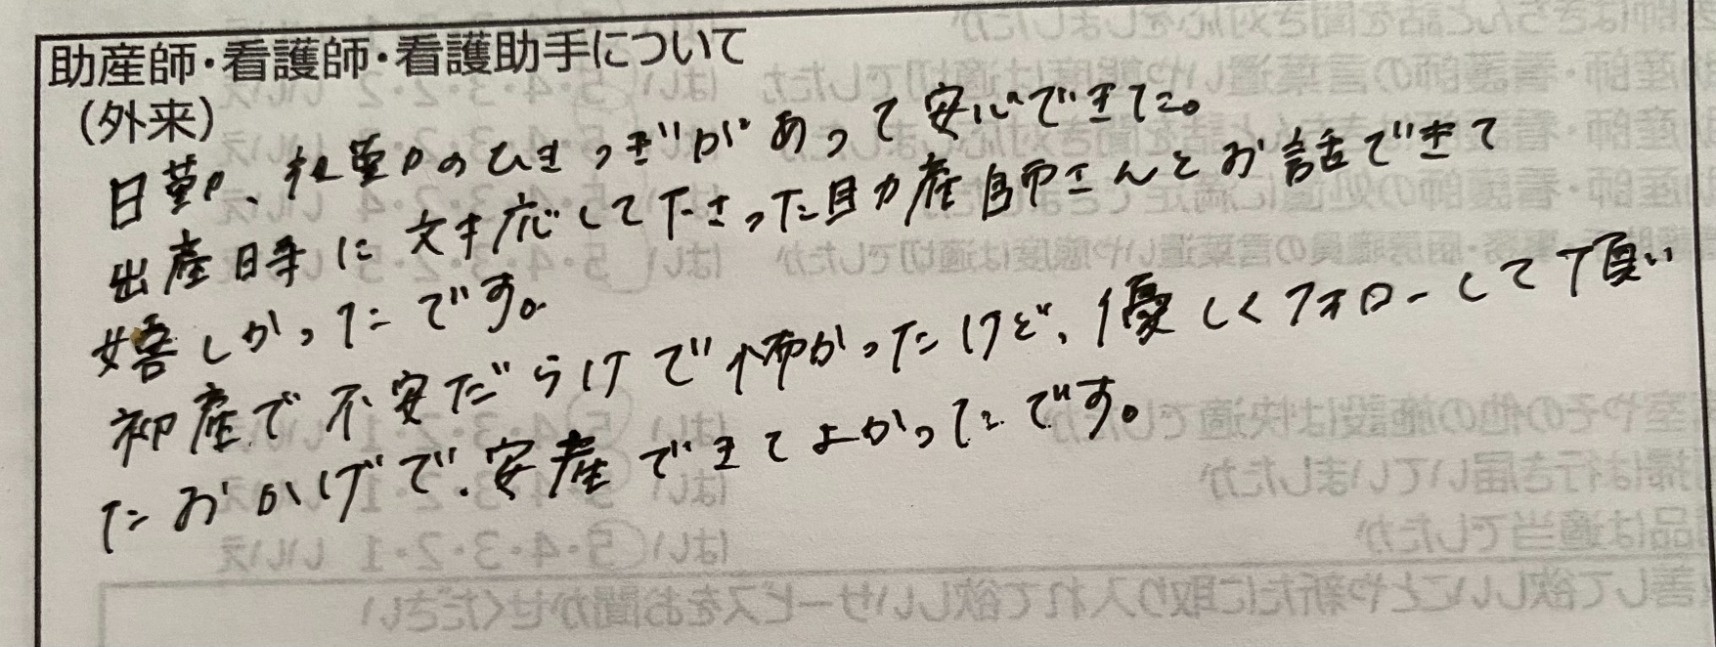 助産師・看護師・看護助手について
(外来)
日勤、夜勤のひきつぎがあって安心できた。
出産時に対応して下さった助産師さんとお話できて
嬉しかったです。
初産で不安だらけで怖かったけど、優しくフォローして頂い
たおかげで、安産できてよかったです。